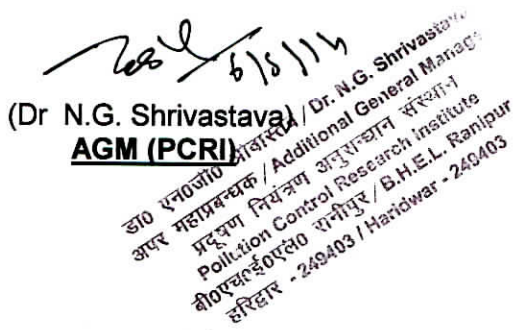 6/5/14
(Dr N.G. Shrivastava)
AGM (PCRI)
डा0 एन0जी0 श्रीवास्तव / Dr. N.G. Shrivastava
अपर महाप्रबन्धक / Additional General Manager
प्रदूषण नियंत्रण अनुसन्धान संस्थान
Pollution Control Research Institute
बी0एच0ई0एल0 रानीपुर / B.H.E.L. Ranipur
हरिद्वार - 249403 / Haridwar - 249403